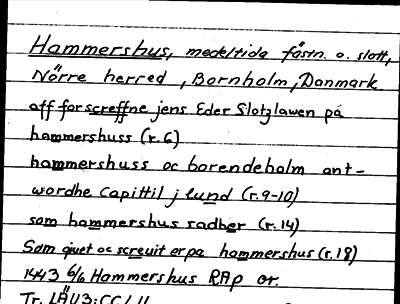 Hammershus, medeltida fästn. o. slott,
Nörre herred, Bornholm, Danmark
aff forscreffne jens Eder Slotzlawen på
hammershuss (r.6)
hammershuss oc borendeholm ant-
wordhe capittil j lund (r.9-10)
som hammershus radber (r.14)
Som giuet oc screuit er pa hammershus (r.18)
1443 6/6 Hammershus RAp or.
Tr. LÄU3:CC/11